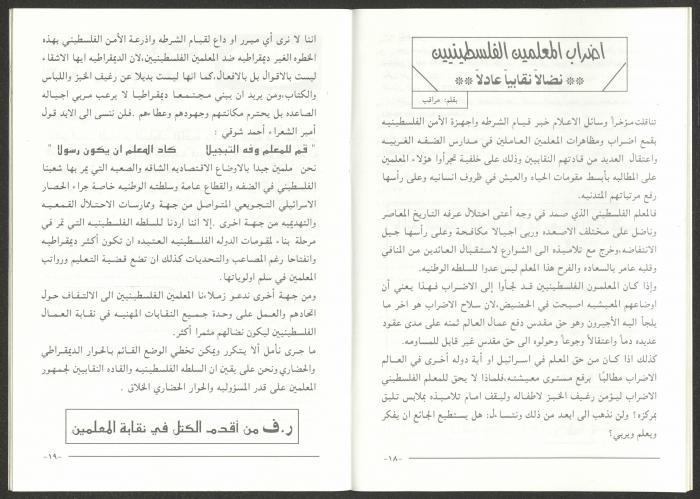 اضراب المعلمين الفلسطينيين
** نضالاً نقابياً عادلاً **
بقلم: مراقب
تناقلت مؤخراً وسائل الاعلام خبر قيام الشرطه واجهزة الأمن الفلسطينيه
بقمع اضراب ومظاهرات المعلمين العاملين في مدارس الضفه الغربيه
واعتقال العديد من قادتهم النقابيين وذلك على خلفية تجرأوا هؤلاء المعلمين
على المطالبه بأبسط مقومات الحياه والعيش في ظروف انسانيه وعلى رأسها
رفع مرتباتهم المتدنيه.
فالمعلم الفلسطيني الذي صمد في وجه أعتى احتلال عرفه التاريخ المعاصر
وناضل على مختلف الاصعده وربى اجيالا مكافحة وعلى رأسها جيل
الانتفاضه، وخرج مع تلاميذه الى الشوارع لاستقبال العائدين من المنافي
وقلبه عامر بالسعاده والفرح هذا المعلم ليس عدوا للسلطه الوطنيه.
وإذا كان المعلمون الفلسطينيين قد لجأوا إلى الاضراب فهذا يعني أن
اوضاعهم المعيشيه اصبحت في الحضيض، لان سلاح الاضراب هو اخر ما
يلجأ اليه الأجيرون وهو حق مقدس دفع عمال العالم ثمنه على مدى عقود
عديده دماً واعتقالاً وجوعاً وحولوه الى حق مقدس غير قابل للمساومه.
كذلك اذا كان من حق المعلم في اسرائيل او أية دوله أخرى في العالم
الاضراب مطالباً برفع مستوى معيشته، فلماذا لا يحق للمعلم الفلسطيني
الاضراب ليؤمن رغيف الخبز لاطفاله وليقف امام تلاميذه بملابس تليق
بمركزه؟ ولن نذهب الى ابعد من ذلك ونتساءل: هل يستطيع الجائع ان يفكر
ويعلم ويربي؟
-١٨-
اننا لا نرى أي مبرر او داع لقيام الشرطه واذرعة الأمن الفلسطيني بهذه
الخطوه الغير ديمقراطيه ضد المعلمين الفلسطينيين، لان الديمقراطيه ايها الاشقاء
ليست بالاقوال بل بالافعال، كما انها ليست بديلا عن رغيف الخبز واللباس
والكتاب، ومن يريد ان يبني مجتمعا ديمقراطيا لا يرعب مربي اجياله
الصاعده بل يحترم مكانتهم وجهودهم وعطاءهم. فلن ننسى الى الابد قول
أمير الشعراء أحمد شوقي :
" قم للمعلم وفه التبجيلا كاد المعلم ان يكون رسولا "
نحن ملمين جيدا بالاوضاع الاقتصاديه الشاقه والصعبه التي يمر بها شعبنا
الفلسطيني في الضفه والقطاع عامة وسلطته الوطنيه خاصة جراء الحصار
الاسرائيلي التجويعي المتواصل من جهة وممارسات الاحتلال القمعيه
والتهديميه من جهة اخرى. إلا اننا اردنا للسلطه الفلسطينيه التي تمر في
مرحلة بناء لمقومات الدوله الفلسطينيه العتيده ان تكون أكثر ديمقراطيه
وانفتاحا رغم المصاعب والتحديات كذلك ان تضع قضية التعليم ورواتب
المعلمين في سلم اولوياتها.
ومن جهة أخرى ندعو زملاءنا المعلمين الفلسطينيين الى الالتفاف حول
اتحادهم والعمل على وحدة جميع النقابات المهنيه في نقابة العمال
الفلسطينيين ليكون نضالهم مثمرا أكثر.
ما جرى نأمل ألا يتكرر ويمكن تخطي الوضع القائم بالحوار الديمقراطي
والحضاري ونحن على يقين ان السلطه الفلسطينيه والقاده النقابيين لجمهور
المعلمين على قدر المسؤوليه والحوار الحضاري الخلاق.
ر.ف من أقدم الكتل في نقابة المعلمين
-١٩-